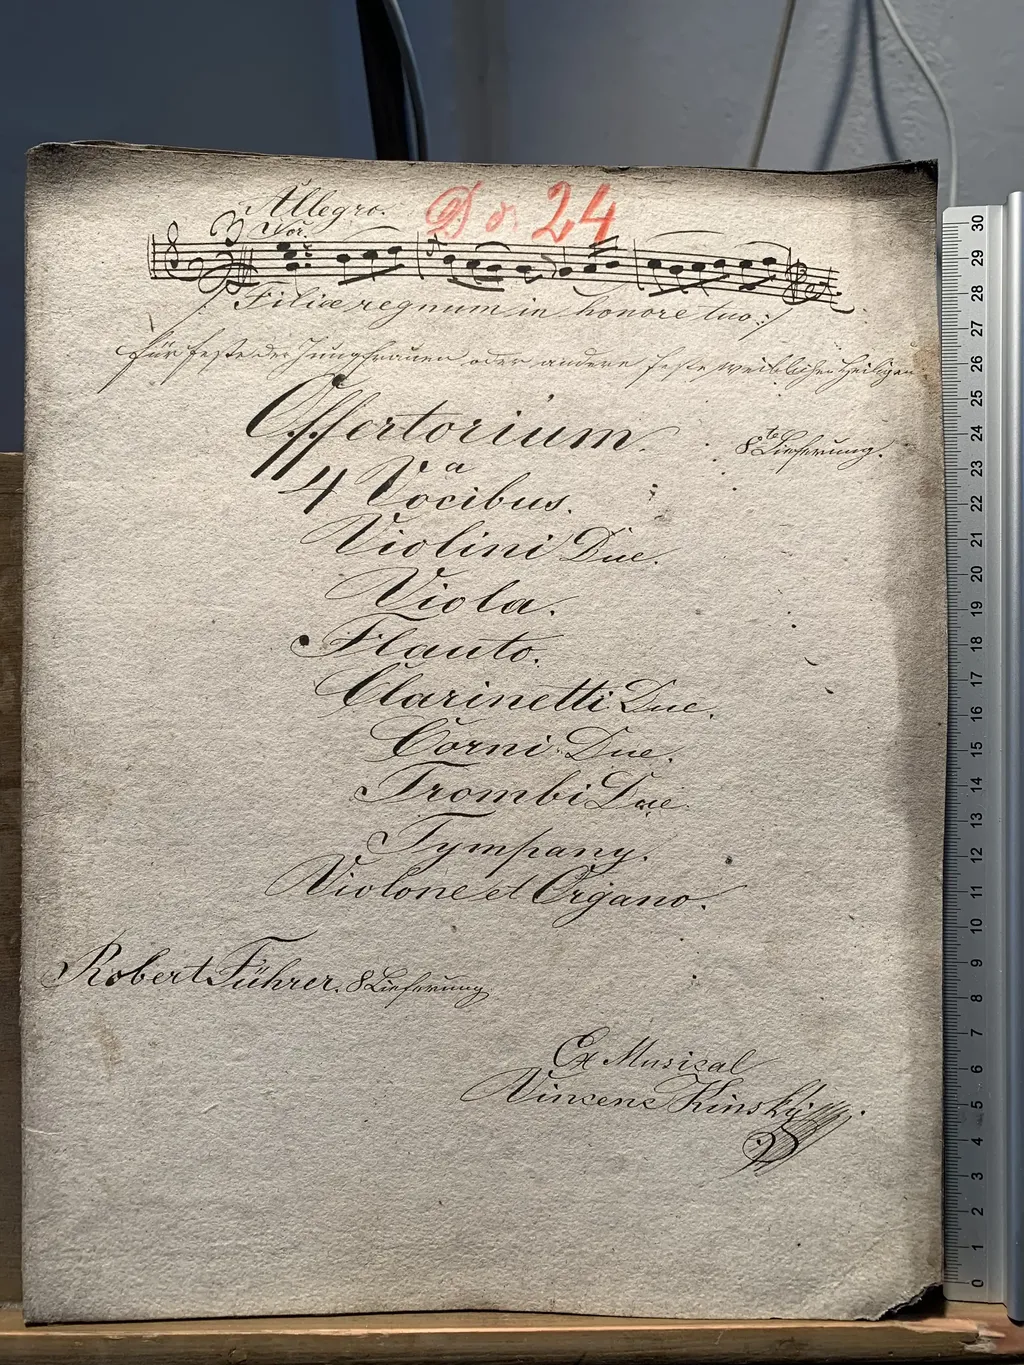 Allegro.
Do. 24
Vor.
Filiæ regnum in honore tuo:/
für feste der Jungfrauen oder andere feste weiblicher Heiligen.
Offertorium.
8te Lieferung.
a
4 Vocibus.
Violini Due.
Viola.
Flauto.
Clarinetti Due.
Corni Due.
Trombi Due.
Tympany.
Violone et Organo.
Robert Führer. 8 Lieferung
Ex Musical
Vincenz Kinsky
30
29
28
27
26
25
24
23
22
21
20
19
18
17
16
15
14
13
12
11
10
9
8
7
6
5
4
3
2
1
0